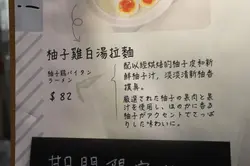 柚子雞白湯拉麵
柚子鶏パイタン
ラーメン
$82
配以經烘焙的柚子皮和新
鮮柚子汁，淡淡清新柚香
撲鼻。
厳選された柚子の果肉と果
汁を使用し、ほのかに香る
柚子がアクセントでさっぱ
りした味わいに。
期間限定